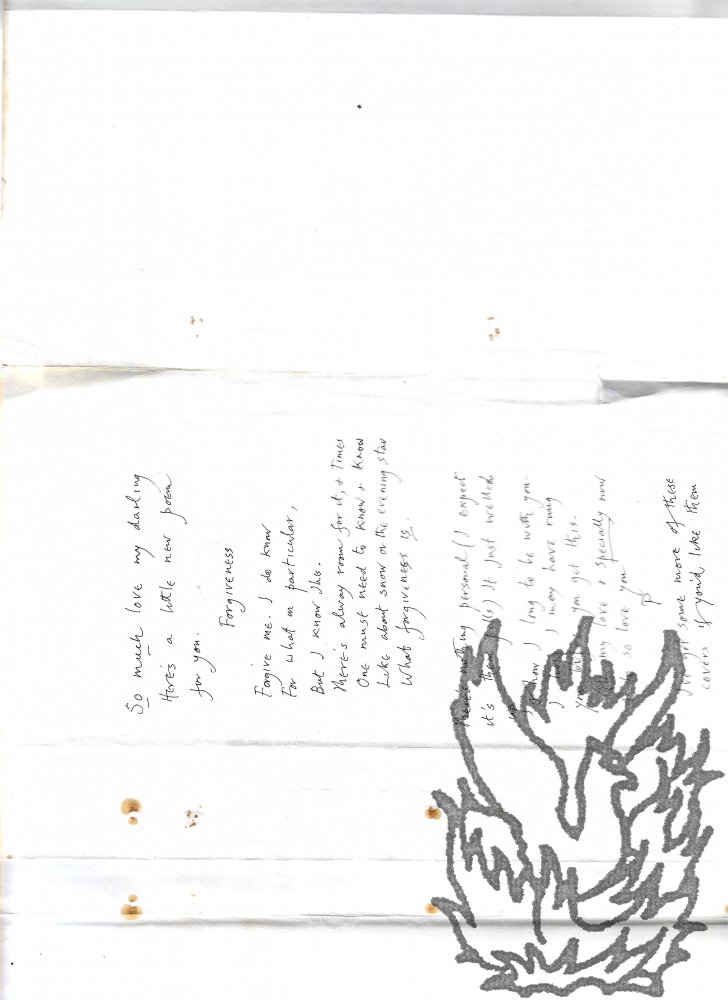 So much love my darling
Here's a little new poem
for you.
Forgiveness
Forgive me. I do know
For what in particular,
But I know this.
There's alway room for it, & Times
One must need to know & know
Like about snow or the evening star
What forgiveness is.
There's nothing personal (I expect
it's the) It just welled
up
know I long to be with you.
I may have rung
you you get this.
my love & specially now
so love you
P
I've got some more of these
covers if you'd like them